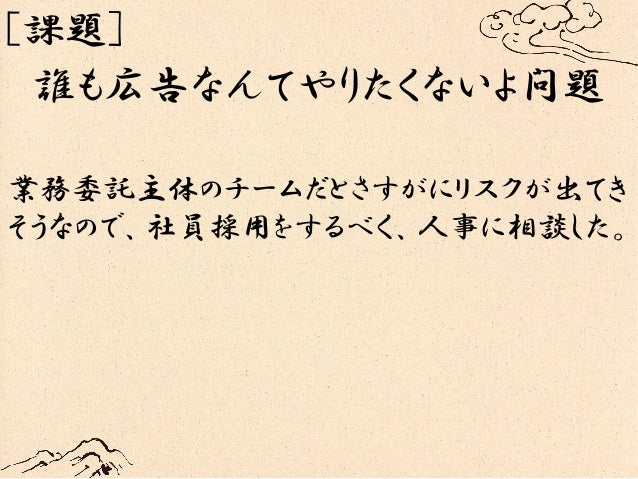 [課題]
誰も広告なんてやりたくないよ問題
業務委託主体のチームだとさすがにリスクが出てき
そうなので、社員採用をするべく、人事に相談した。